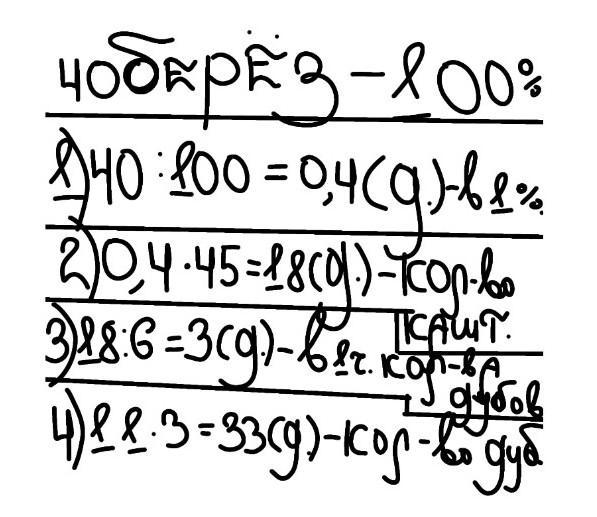 40 берёз - 100%
1) 40 : 100 = 0,4 (д.) - в 1%
2) 0,4 · 45 = 18 (д.) - кол-во
кашт.
3) 18 : 6 = 3 (д.) - в 1 ч. кол-ва
дубов
4) 11 · 3 = 33 (д.) - кол-во дуб.